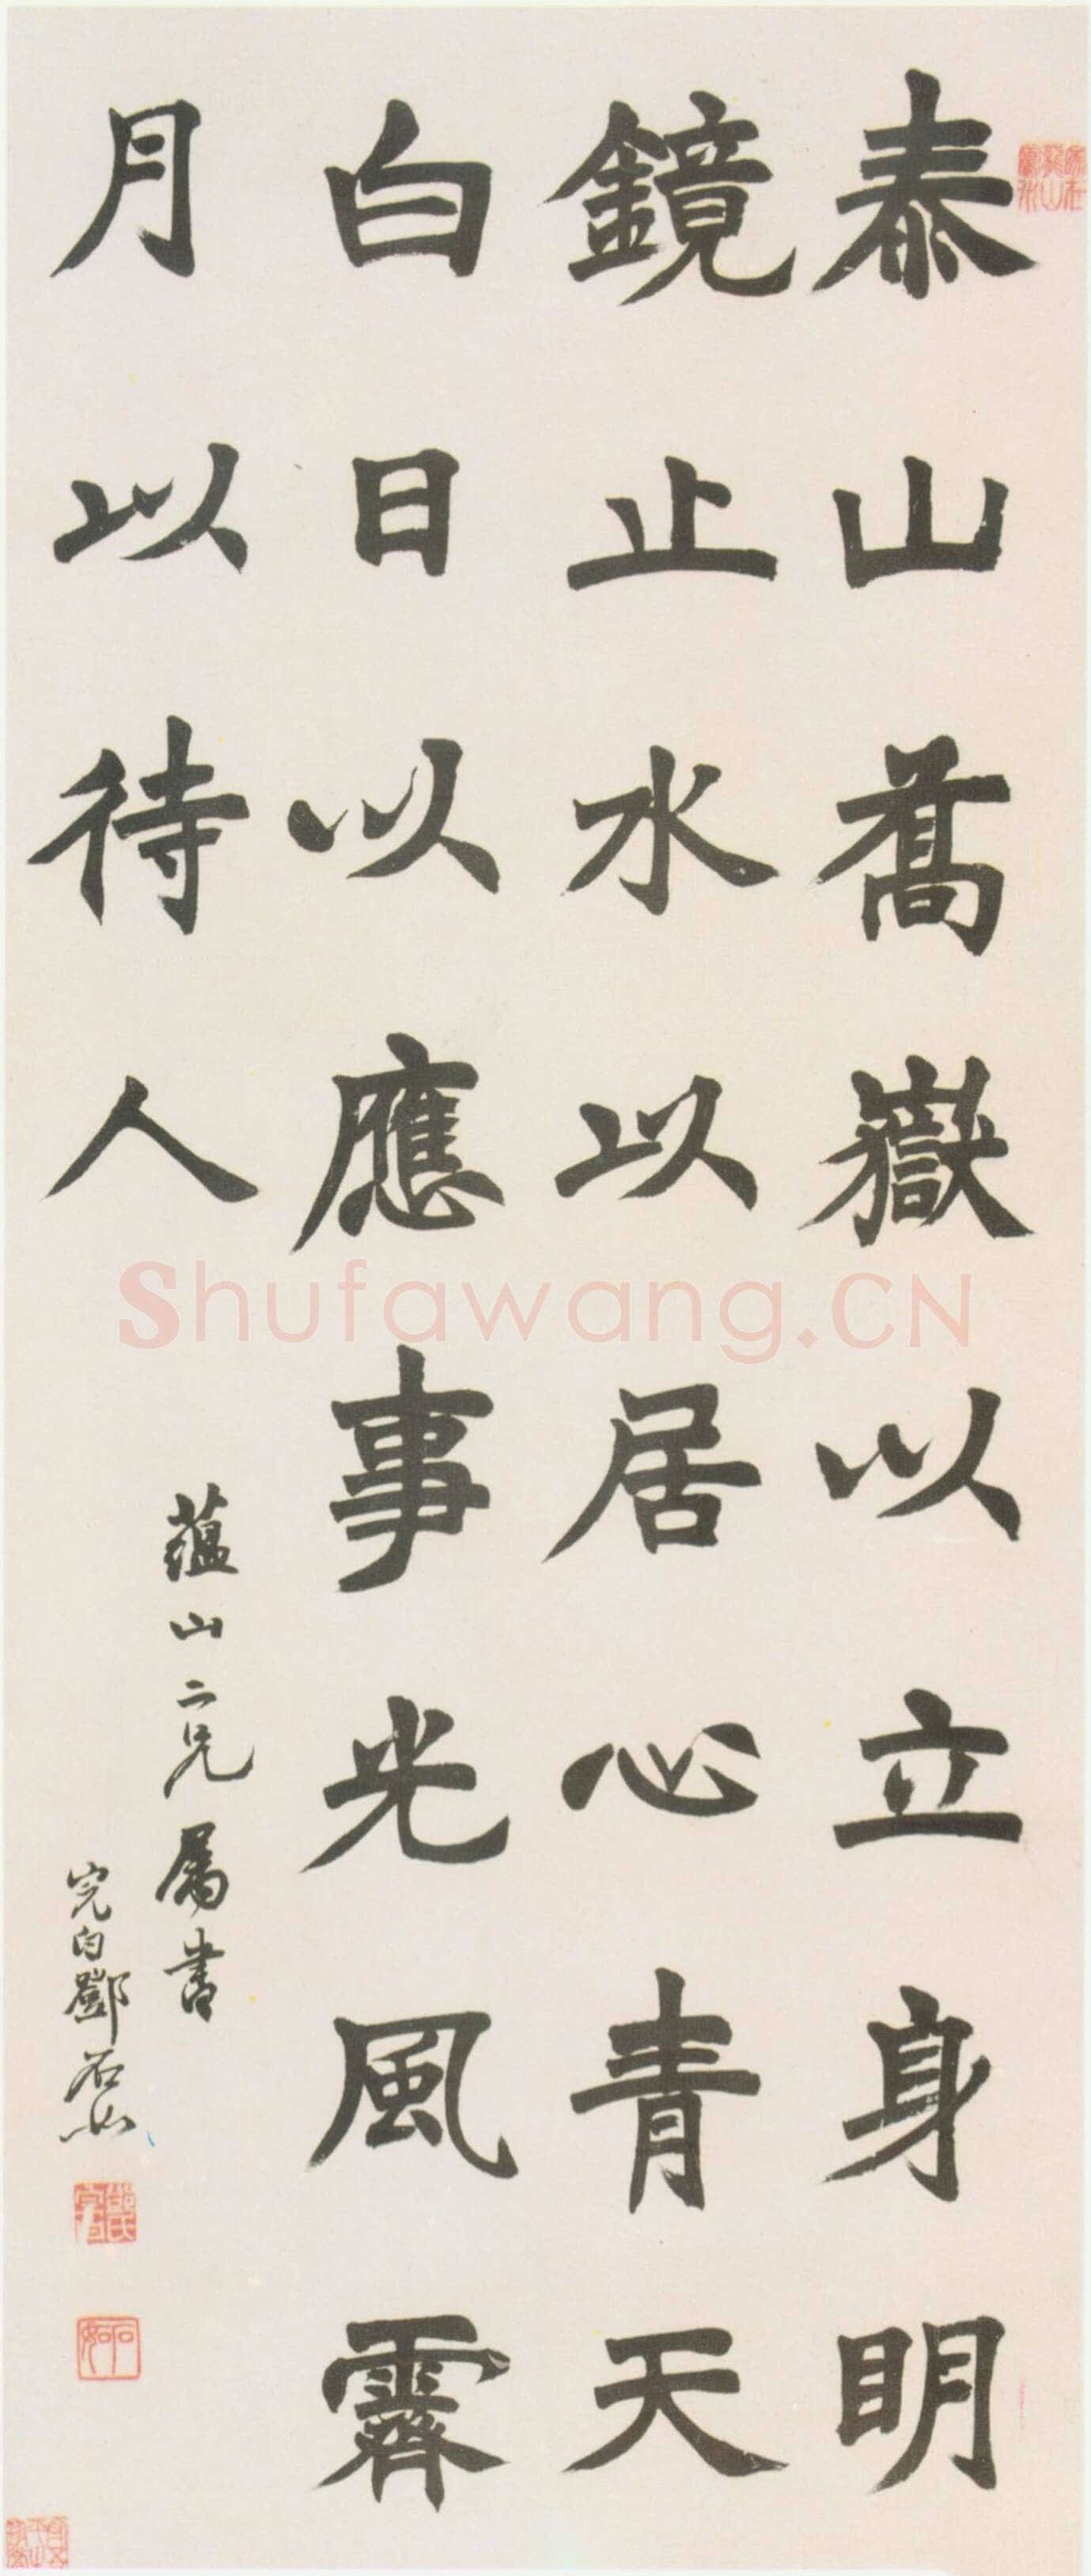 泰山喬嶽以立身明
鏡止水以居心青天
白日以應事光風霽
月以待人
蘊山二兄屬書
完白鄧石如
鄧氏完白
石如
Shufawang.CN